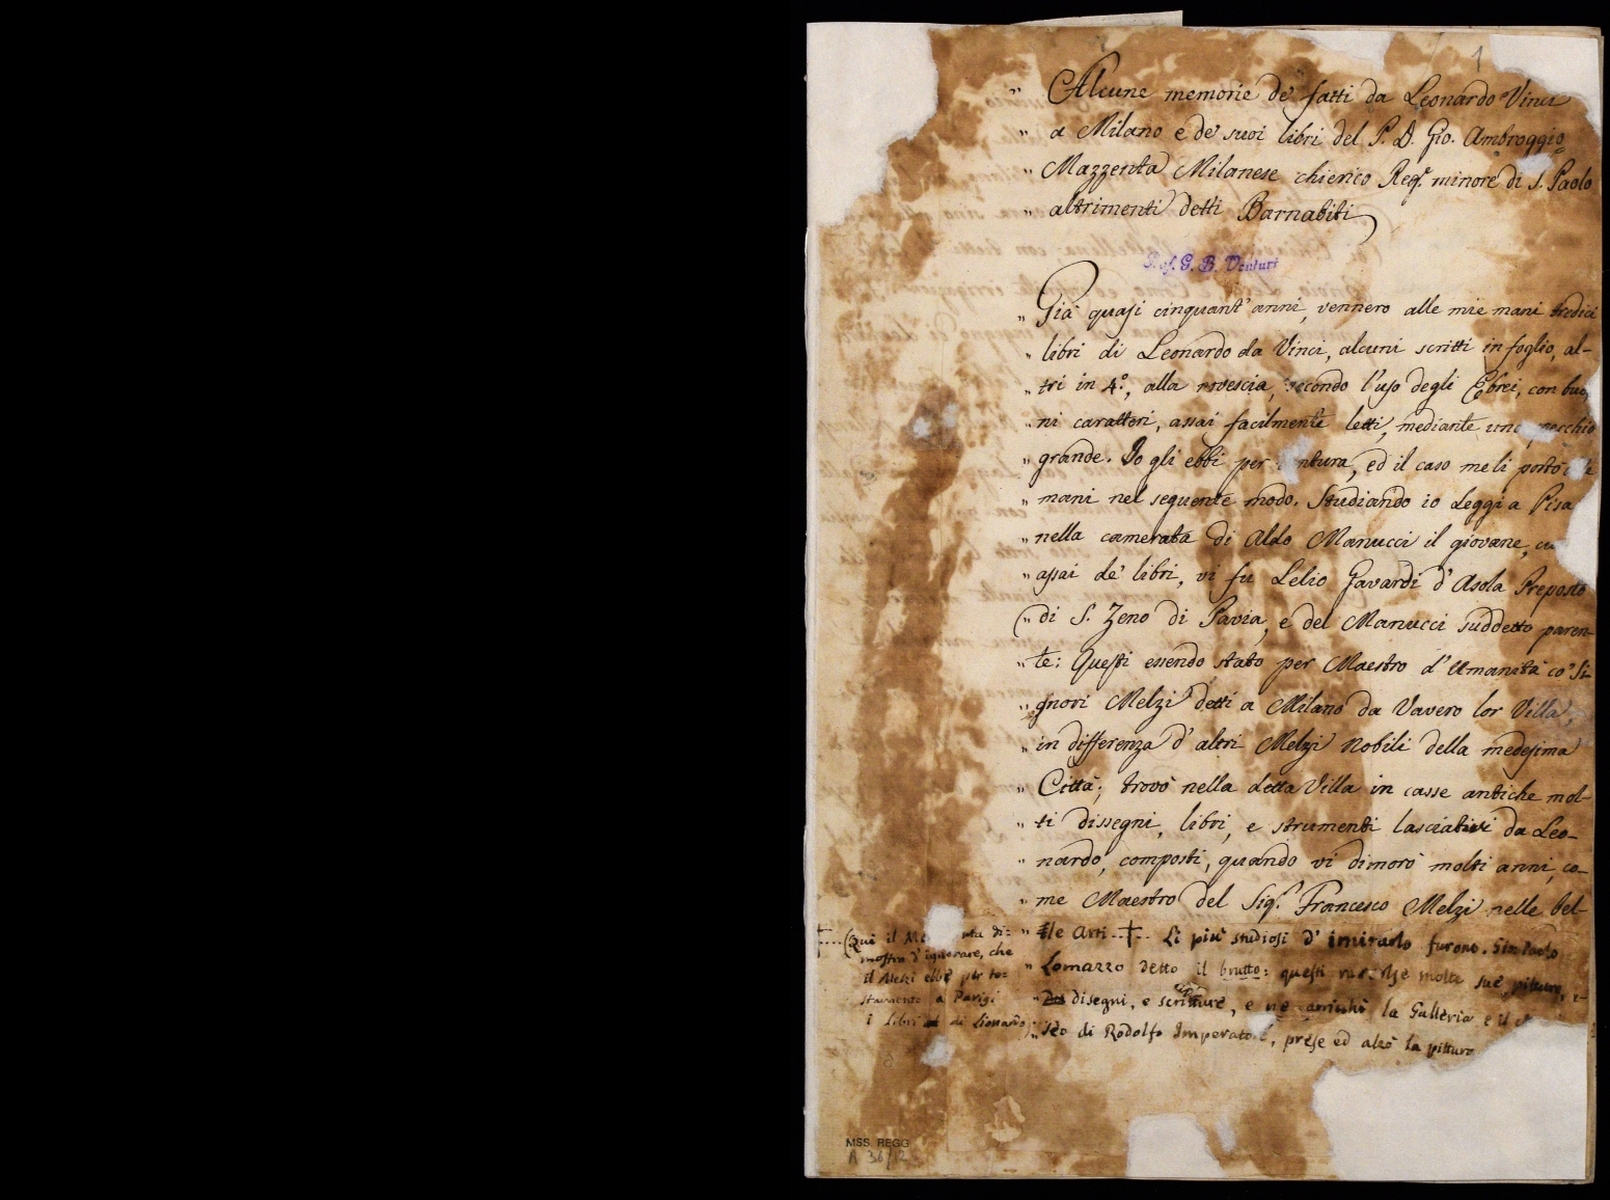 1
" Alcune memorie de' fatti da Leonardo Vinci
" a Milano e de' suoi libri del P. D. Gio. Ambroggio
" Mazzenta Milanese chierico Reg.e minore di S. Paolo
" altrimenti detti Barnabiti
Prof. G. B. Venturi
" Già quasi cinquant' anni, vennero alle mie mani tredici
" libri di Leonardo da Vinci, alcuni scritti in foglio, al-
" tri in 4.°, alla rovescia, secondo l'uso degli Ebrei, con buo
" ni caratteri, assai facilmente letti, mediante uno
" grande. Io gli ebbi per ventura, ed il caso me li portò
" mani nel seguente modo. Studiando io Leggi a Pisa
" nella camerata di Aldo Manucci il giovane,
" assai de' libri, vi fu Lelio Gavardi d'Asola Preposto
(" di S. Zeno di Pavia, e del Manucci suddetto paren-
" te: Questi essendo stato per Maestro d'Umanità co' Si-
" gnori Melzi detti a Milano da Vavero lor Villa,
" in differenza d' altri Melzi Nobili della medesima
" Città; trovò nella detta Villa in casse antiche mol-
" ti dissegni, libri, e strumenti lasciativi da Leo-
" nardo, composti, quando vi dimorò molti anni, co-
" me Maestro del Sig.r Francesco Melzi nelle bel-
" le Arti..+.. Li più studiosi d' imirarlo furono. Gin Paolo
" Lomazzo detto il brutto: questi raccolse molte sue pitture,
" disegni, e scritture, e ne arrichì la Galleria e il
" seo di Rodolfo Imperatore, prese ed alzò la pittura
+....(Qui il di=
mostra d'ignorare, che
il Melzi ebbe per te=
stamento a Parigi
i Libri di Lionardo)
MSS. REGG
A 36/12